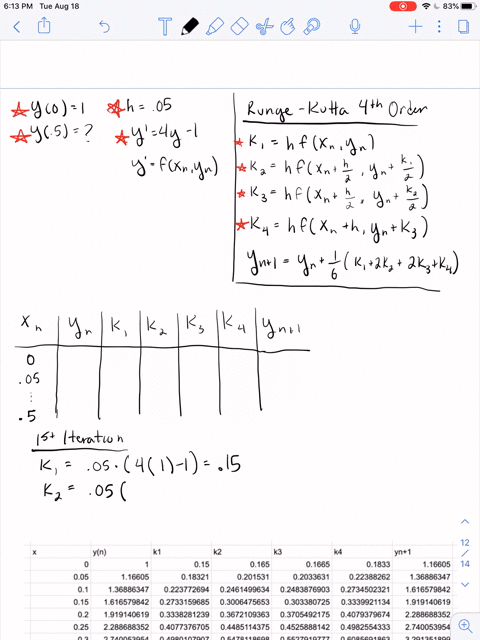 6:13 PM Tue Aug 18
83%
☆ y(0)=1 ☆ h = .05
☆ y(.5) = ? ☆ y' = 4y -1
y' = f(xn, yn)
Runge-Kutta 4th Order
☆ K1 = hf(xn, yn)
☆ K2 = hf(xn + h/2, yn + k1/2)
☆ K3 = hf(xn + h/2, yn + k2/2)
☆ K4 = hf(xn + h, yn + K3)
yn+1 = yn + 1/6 (K1 + 2K2 + 2K3 + K4)
xn yn K1 K2 K3 K4 yn+1
0
.05
⋮
.5
1st Iteration
K1 = .05 · (4(1)-1) = .15
K2 = .05 (
12
/
14
x y(n) k1 k2 k3 k4 yn+1
0 1 0.15 0.165 0.1665 0.1833 1.16605
0.05 1.16605 0.18321 0.201531 0.2033631 0.22388262 1.36886347
0.1 1.36886347 0.223772694 0.2461499634 0.2483876903 0.2734502321 1.616579842
0.15 1.616579842 0.2733159685 0.3006475653 0.303380725 0.3339921134 1.919140619
0.2 1.919140619 0.3338281239 0.3672109363 0.3705492175 0.4079379674 2.288688352
0.25 2.288688352 0.4077376705 0.4485114375 0.4525888142 0.4982554333 2.740053954